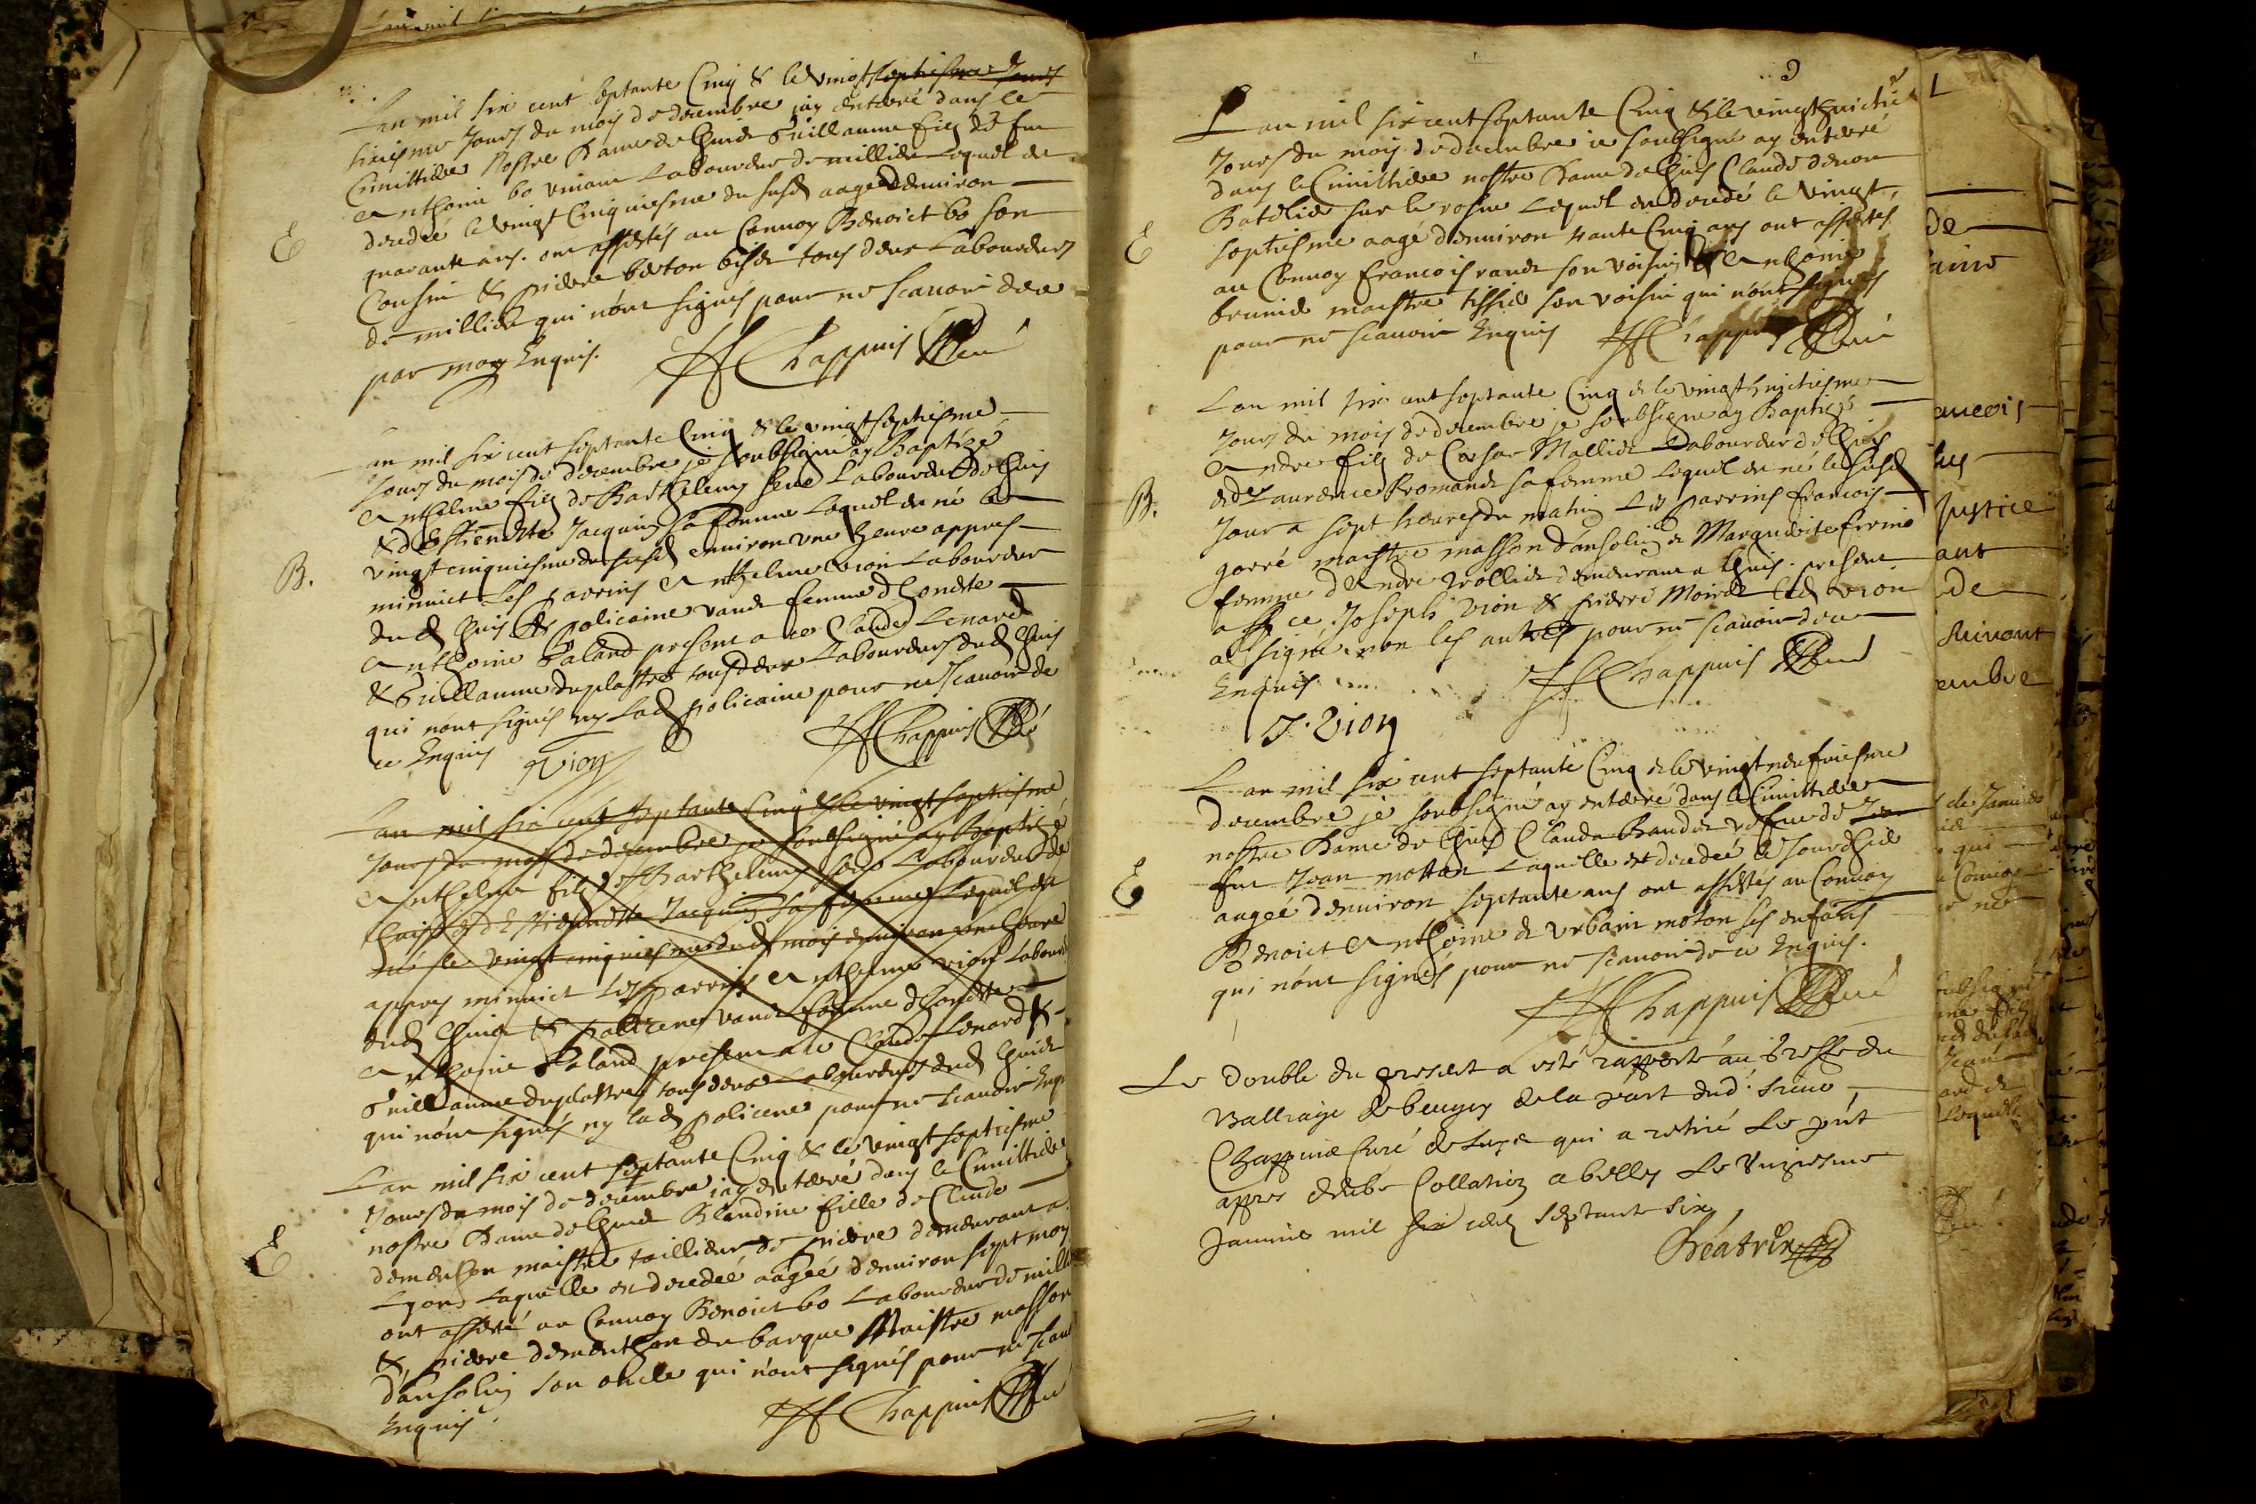 Lan mil six cent septante Cinq & le vingt septiesme Jours
sixiesme Jours du mois de decembre jay enterré dans le
Cimittiere Nostre Dame de Chuis Guillaume filz de feu
Anthoine bo vivant Laboureur de millieu Lequel est
decedée le vingt Cinquiesme du susd aagé Denviron
E
quarante ans. ont assistés au Convoy Benoict bo son
Cousin & pierre berton tous deux Laboureurs
de millieu qui n'ont signés pour ne scavoir de ce
par moy Enquis. Chappuis Curé
Lan mil six cent septante Cinq & le vingt septiesme
Jours du mois de decembre je soubsigné ay Baptizé
Anthelme filz de Barthelemy Laboureur de Chuis
& d'Estiendtte Jacquin sa femme Lequel est né le
vingt cinquiesme du susd environ une heure appres
B.
minuict Les parrins Anthelme vion Laboureur
dud Chuis & policaine vande femme d'honeste
Anthoine Paland present a ce Claude Lenard
& Guillaume duplastre tous deux Laboureurs dud Chuis
qui n'ont signés ny Lad policaine pour ne scavoir de
ce Enquis Vion Chappuis Curé
Lan mil six cent septante Cinq & le vingt septiesme
Jours du mois de decembre je soubsigné ay Baptizé
Anthelme filz de Barthelemy Laboureur de
Chuis & d'Estiendtte Jacquin sa femme Lequel est
né le vingt cinquiesme dud mois environ une heure
appres minuict Les parrins Anthelme vion Labour
dud Chuis & policene vande femme d'honeste
Anthoine Paland present a ce Claude Lenard &
Guillaume duplastre tous deux Laboureurs dud Chuis
qui n'ont signés ny lad policene pour ne scavoir Enq
Lan mil six cent septante Cinq & le vingt septiesme
Jours du mois de decembre jay enterré dans le Cimittiere
nostre Dame de Chuis Blandine fille de Claude
E
dementhon maistre taillieur de pierre demeurant a
Lyon Laquelle est decedée aagée d'environ sept moy
ont assisté au Convoy Benoict bo Laboureur de mill
& pierre dementhon du barque Maistre masson
d'ansolin son oncle qui n'ont signés pour ne scav
Enquis. Chappuis Curé
Lan mil six cent septante Cinq & le vingt huictie
Jours du mois de decembre je soubsigné ay enterré
dans le Cimittiere nostre Dame de Chuis Claude
Batelier sur le rosne Lequel est decedé le vingt
septiesme aagé d'environ trante Cinq ans ont assistés
E
au Convoy francois vande son voisin & Anthoine
brunid maistre tissie son voisin qui n'ont signés
pour ne scavoir Enquis Chappuis Curé
Lan mil six cent septante Cinq & le vingt huictiesme
Jours du mois de decembre je soubsigné ay Baptizé
Andre filz de Cesar Mallier Laboureur de Chuis
& de Laurence Romande sa femme Lequel est né le susd
B.
Jour a sept heures du matin Les parrins francois
gorré maistre masson d'ansolin & Marguerite
femme d'Andre demeurant a Chuis. present
a ce Joseph Vion & pierre Led vion
a signé non les autres pour ne scavoir de ce
Enquis. Chappuis Curé
J. Vion
Lan mil six cent septante Cinq & le vingt neufviesme
decembre je soubsigné ay enterré dans le Cimittiere
nostre Dame de Chuis Claude vefue de
feu Jean motton Laquelle est decedée le Jourdhier
E
aagée d'environ septante ans ont assistés au Convoy
Benoict Anthoine & Urbain moton ses enfans
qui n'ont signés pour ne scavoir de ce Enquis.
Chappuis Curé
Le double du present a esté rapporté au Greffe du
Balliage de beugey de la part dud. Sieur
Chappuis Curé de qui a retiré Le pnt
apres deube Collation a belley Le
Janvier mil six cent septante six
Béatrix
de
ancois
Justice
ant
de
suivant
embre